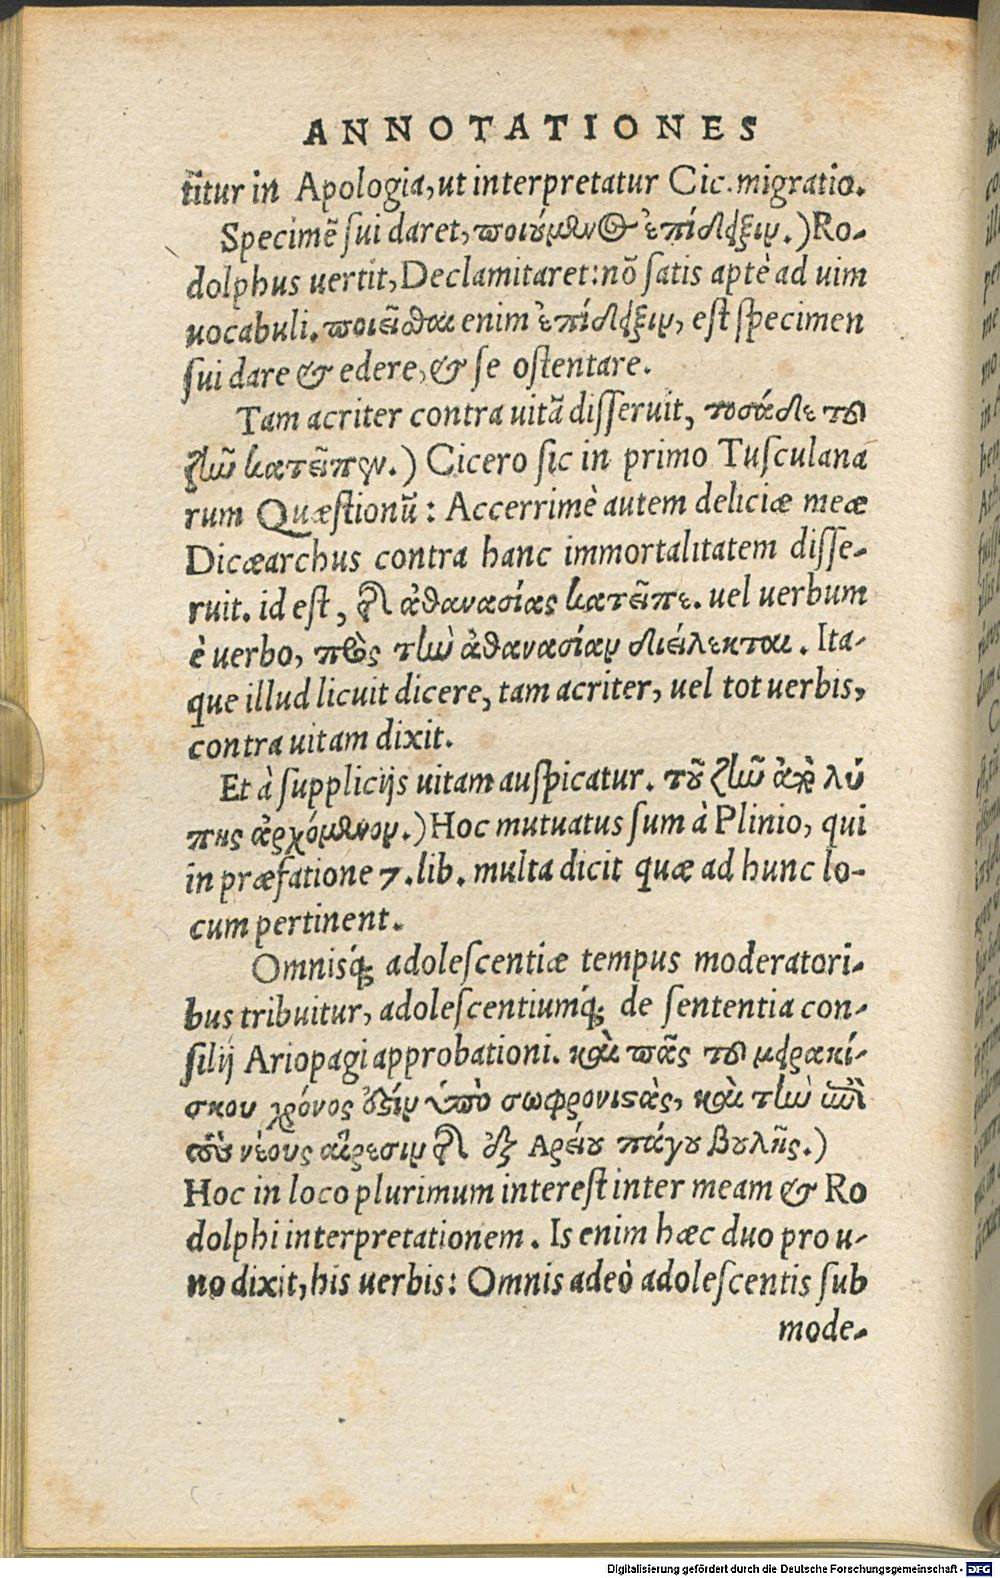 ANNOTATIONES
titur in Apologia, ut interpretatur Cic. migratio.
Specimẽ ſui daret, ποιούμενος ἐπίδειξιν.) Ro-
dolphus uertit, Declamitaret: nõ ſatis aptè ad uim
uocabuli. ποιεῖσθαι enim ἐπίδειξιν, eſt ſpecimen
ſui dare & edere, & ſe oſtentare.
Tam acriter contra uitã diſſeruit, τοσάδε τοῦ
ζῆν κατεῖπεν.) Cicero ſic in primo Tuſculana
rum Quæſtionũ: Accerrimè autem deliciæ meæ
Dicæarchus contra hanc immortalitatem diſſe-
ruit. id eſt, τῆς ἀθανασίας κατεῖπε. uel uerbum
è uerbo, πρὸς τὴν ἀθανασίαν διείλεκται. Ita-
que illud licuit dicere, tam acriter, uel tot uerbis,
contra uitam dixit.
Et à ſupplicijs uitam auſpicatur. τοῦ ζῆν ἀπὸ λύ
πης ἀρχόμενον.) Hoc mutuatus ſum à Plinio, qui
in præfatione 7. lib. multa dicit quæ ad hunc lo-
cum pertinent.
Omnisq́; adoleſcentiæ tempus moderatori-
bus tribuitur, adoleſcentiumq́; de ſententia con-
ſilij Ariopagi approbationi. καὶ πᾶς τοῦ μειρακί-
σκου χρόνος ἐστίν ὑπὸ σωφρονιστὰς, καὶ τὴν ἐπὶ
τοὺς νέους αἵρεσιν τῆς ἐξ Αρείου πάγου βουλῆς.)
Hoc in loco plurimum intereſt inter meam & Ro
dolphi interpretationem. Is enim hæc duo pro u-
no dixit, his uerbis: Omnis adeò adoleſcentis ſub
mode-
Digitalisierung gefördert durch die Deutsche Forschungsgemeinschaft - DFG